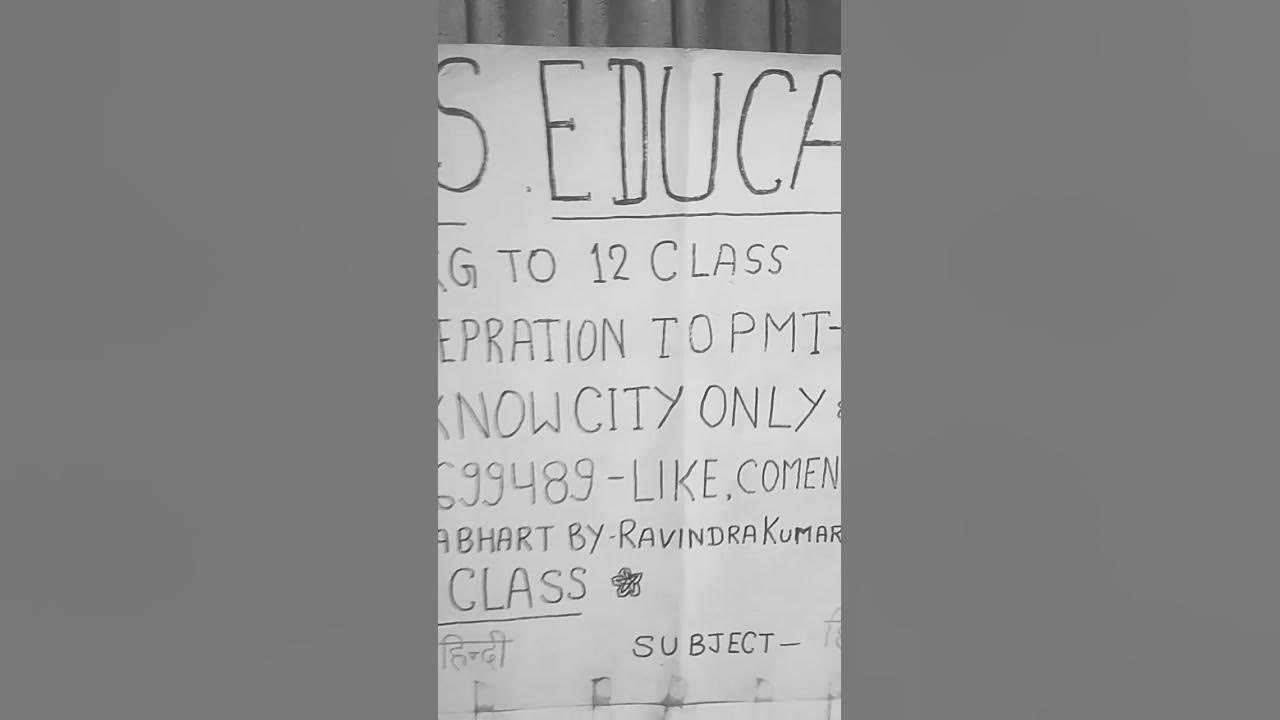 S. EDUCA
KG TO 12 CLASS
EPRATION TO PMT-
KNOW CITY ONLY
699489-LIKE, COMEN
ABHART BY-RAVINDRA KUMAR
CLASS
हिन्दी SUBJECT-